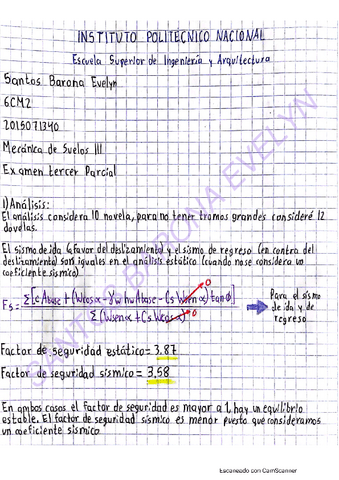 INSTITUTO POLITECNICO NACIONAL
Escuela Superior de Ingeniería y Arquitectura
Santos Barona Evelyn
6CM2
2015071340
Mecánica de Suelos III
Examen tercer Parcial
1) Análisis:
El análisis considera 10 novela, para no tener tramos grandes consideré 12
dovelas.
El sismo de ida (a favor del deslizamiento) y el sismo de regreso (en contra del
deslizamiento) son iguales en el análisis estático (cuando no se considera un
coeficiente sísmico)
Fs = Σ[c Abase + (Wcos α - γw hw Abase - Cs Wsen α) tan ϕ] / Σ (Wsen α + Cs Wcos α)
0
0
Para el sismo
de ida y de
regreso
Factor de seguridad estático = 3.87
Factor de seguridad sísmico = 3.58
En ambos casos el factor de seguridad es mayor a 1, hay un equilibrio
estable. El factor de seguridad sísmico es menor puesto que consideramos
un coeficiente sísmico
SANTOS BARONA EVELYN
Escaneado con CamScanner